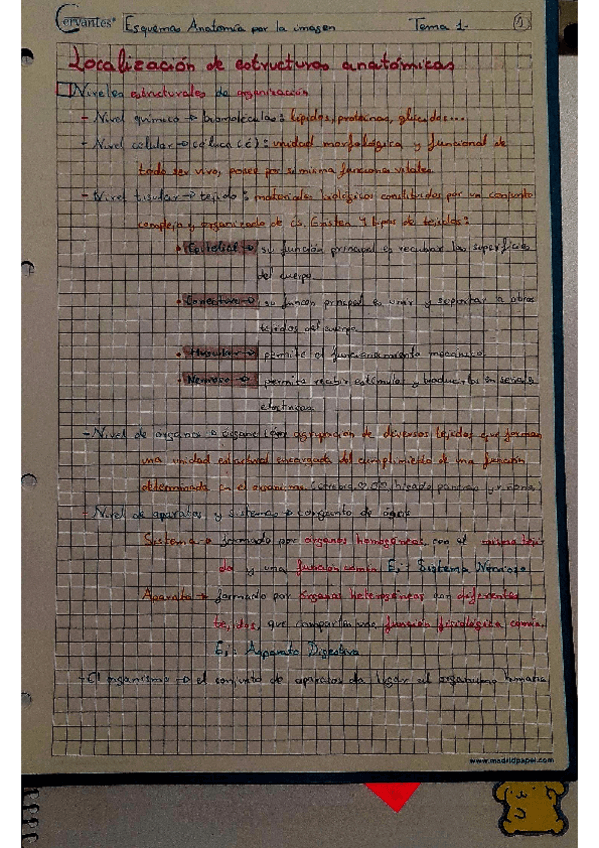 Cervantes® Esquema Anatomía por la imagen Tema 1. 1
Localización de estructuras anatómicas
Niveles estructurales de organización
- Nivel químico → biomoléculas: lípidos, proteínas, glúcidos...
- Nivel celular → célula (c): unidad morfológica y funcional de
todo ser vivo, posee por si misma funciones vitales.
- Nivel tisular → tejido: materiales biológicos constituidos por un conjunto
complejo y organizado de cs. Existen 4 tipos de tejidos:
• Epitelial → su función principal es recubrir las superficies
del cuerpo
• Conectivo → su función principal es unir y soportar a otros
tejidos del cuerpo
• Muscular → permite el funcionamiento mecánico.
• Nervioso → permite recibir estímulos y traducirlos en señales
eléctricas
- Nivel de órgano → agrupación de diversos tejidos que forman
una unidad estructural encargada del cumplimiento de una función
determinada en el organismo hígado, páncreas y riñones)
- Nivel de aparatos y sistemas → conjunto de órganos
Sistema → formado por órganos homogéneos, con el mismo teji
do y una función común Ej: Sistema Nervioso
Aparato → formado por órganos heterogéneos con diferentes
tejidos, que comparten una función fisiológica común.
Ej: Aparato Digestivo
- El organismo → el conjunto de aparatos da lugar al organismo humano
www.madridpapel.com